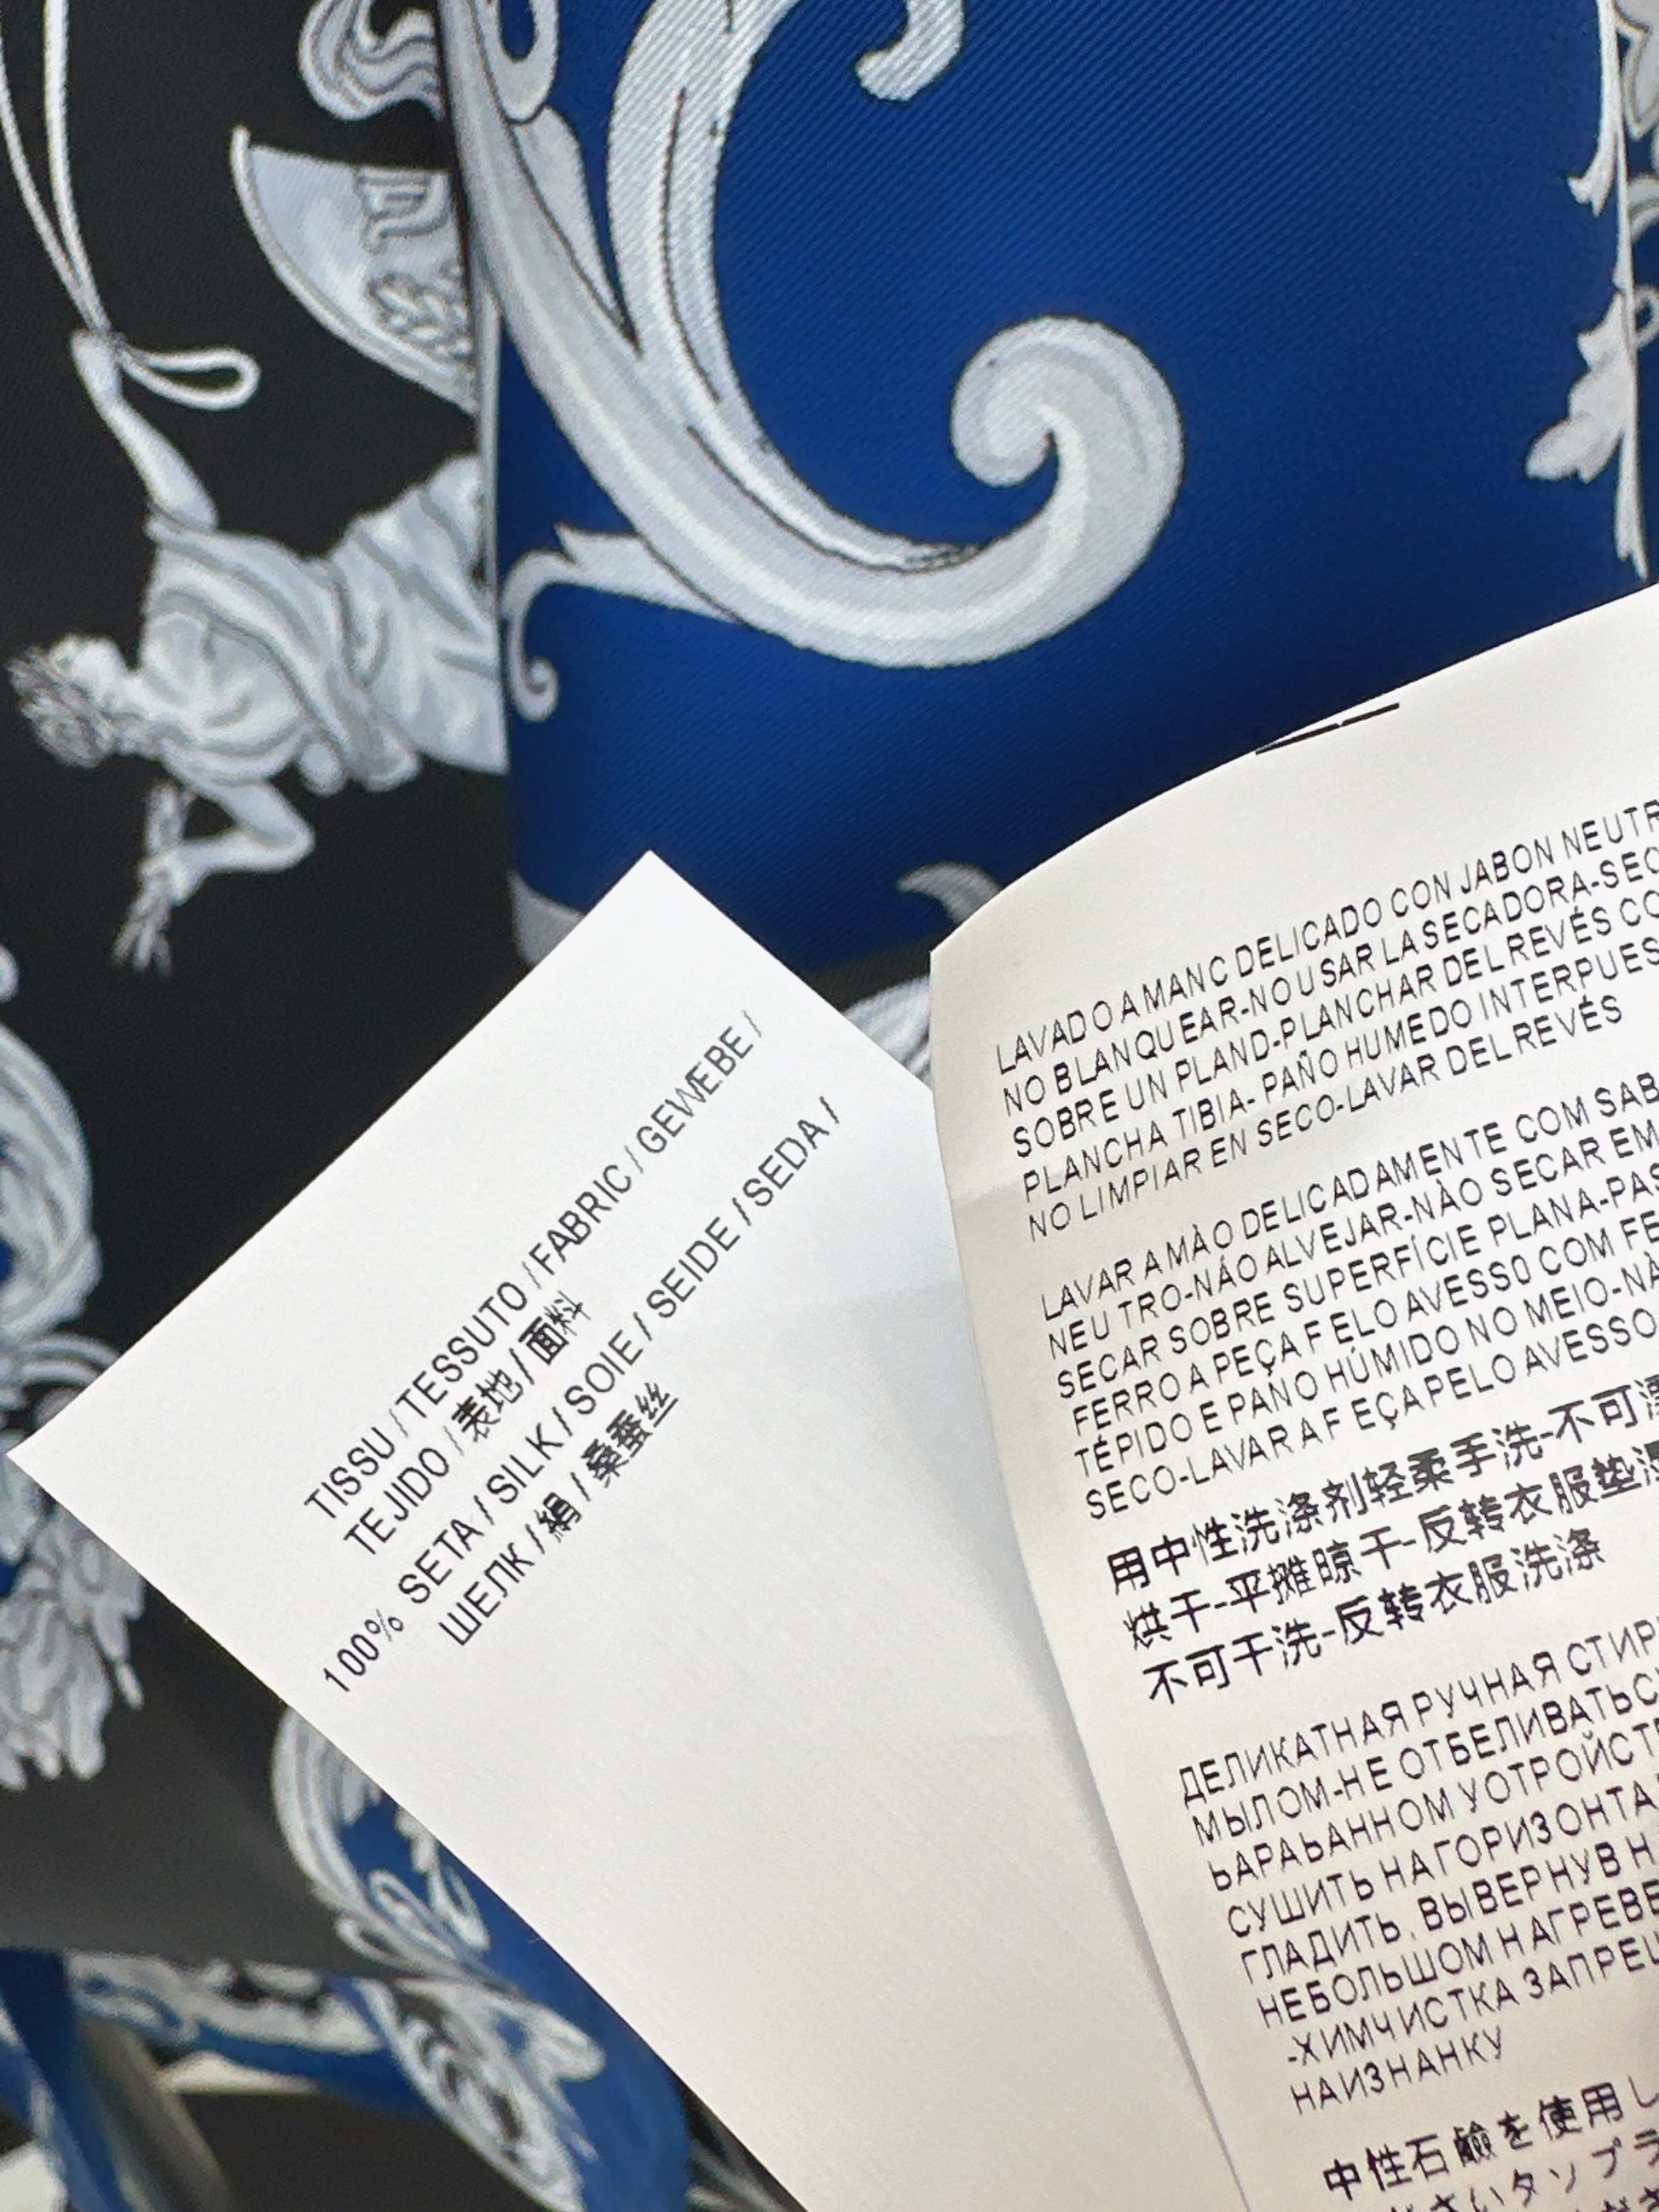 TISSU / TESSUTO / FABRIC / GEWEBE /
TEJIDO / 表地 / 面料
100% SETA / SILK / SOIE / SEIDE / SEDA /
ШЕЛК / 絹 / 桑蚕丝
LAVADO A MANC DELICADO CON JABON NEUTR
NO BLANQUEAR-NO USAR LA SECADORA-SEC
SOBRE UN PLAND-PLANCHAR DEL REVÉS CO
PLANCHA TIBIA- PAÑO HUMEDO INTERPUES
NO LIMPIAR EN SECO-LAVAR DEL REVÉS
LAVAR A MÀO DELICADAMENTE COM SAB
NEUTRO-NÁO ALVEJAR-NÀO SECAR EM
SECAR SOBRE SUPERFÍCIE PLANA-PAS
FERRO A PEÇA FELO AVESSO COM FE
TÉPIDO E PAÑO HÚMIDO NO MEIO-NÀ
SECO-LAVAR A FEÇA PELO AVESSO
用中性洗涤剂轻柔手洗-不可漂
烘干-平摊晾干-反转衣服垫湿
不可干洗-反转衣服洗涤
ДЕЛИКАТНАЯ РУЧНАЯ СТИР
МЫЛОМ-НЕ ОТБЕЛИВАТЬС
ЬАРАЬАННОМ УОТРОЙСТ
СУШИТЬ НА ГОРИЗОНТА
ГЛАДИТЬ, ВЫВЕРНУВ Н
НЕБОЛЬШОМ НАГРЕВЕ
-ХИМЧИСТКА ЗАПРЕЩ
НАИЗНАНКУ
中性石鹼を使用し
タンブラ